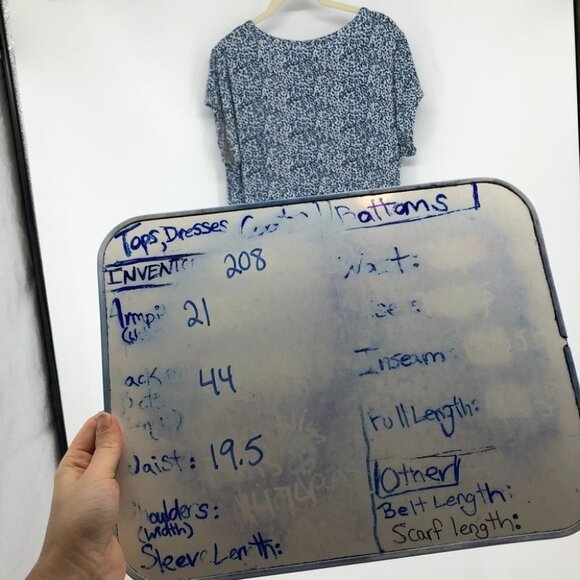 Tops, Dresses
INVENT 208
Armpi 21
ack 44
Waist: 19.5
Shoulders:
(width)
Sleeve Length:
Bottoms
Waist:
Inseam
Full Length:
Other
Belt Length:
Scarf length: